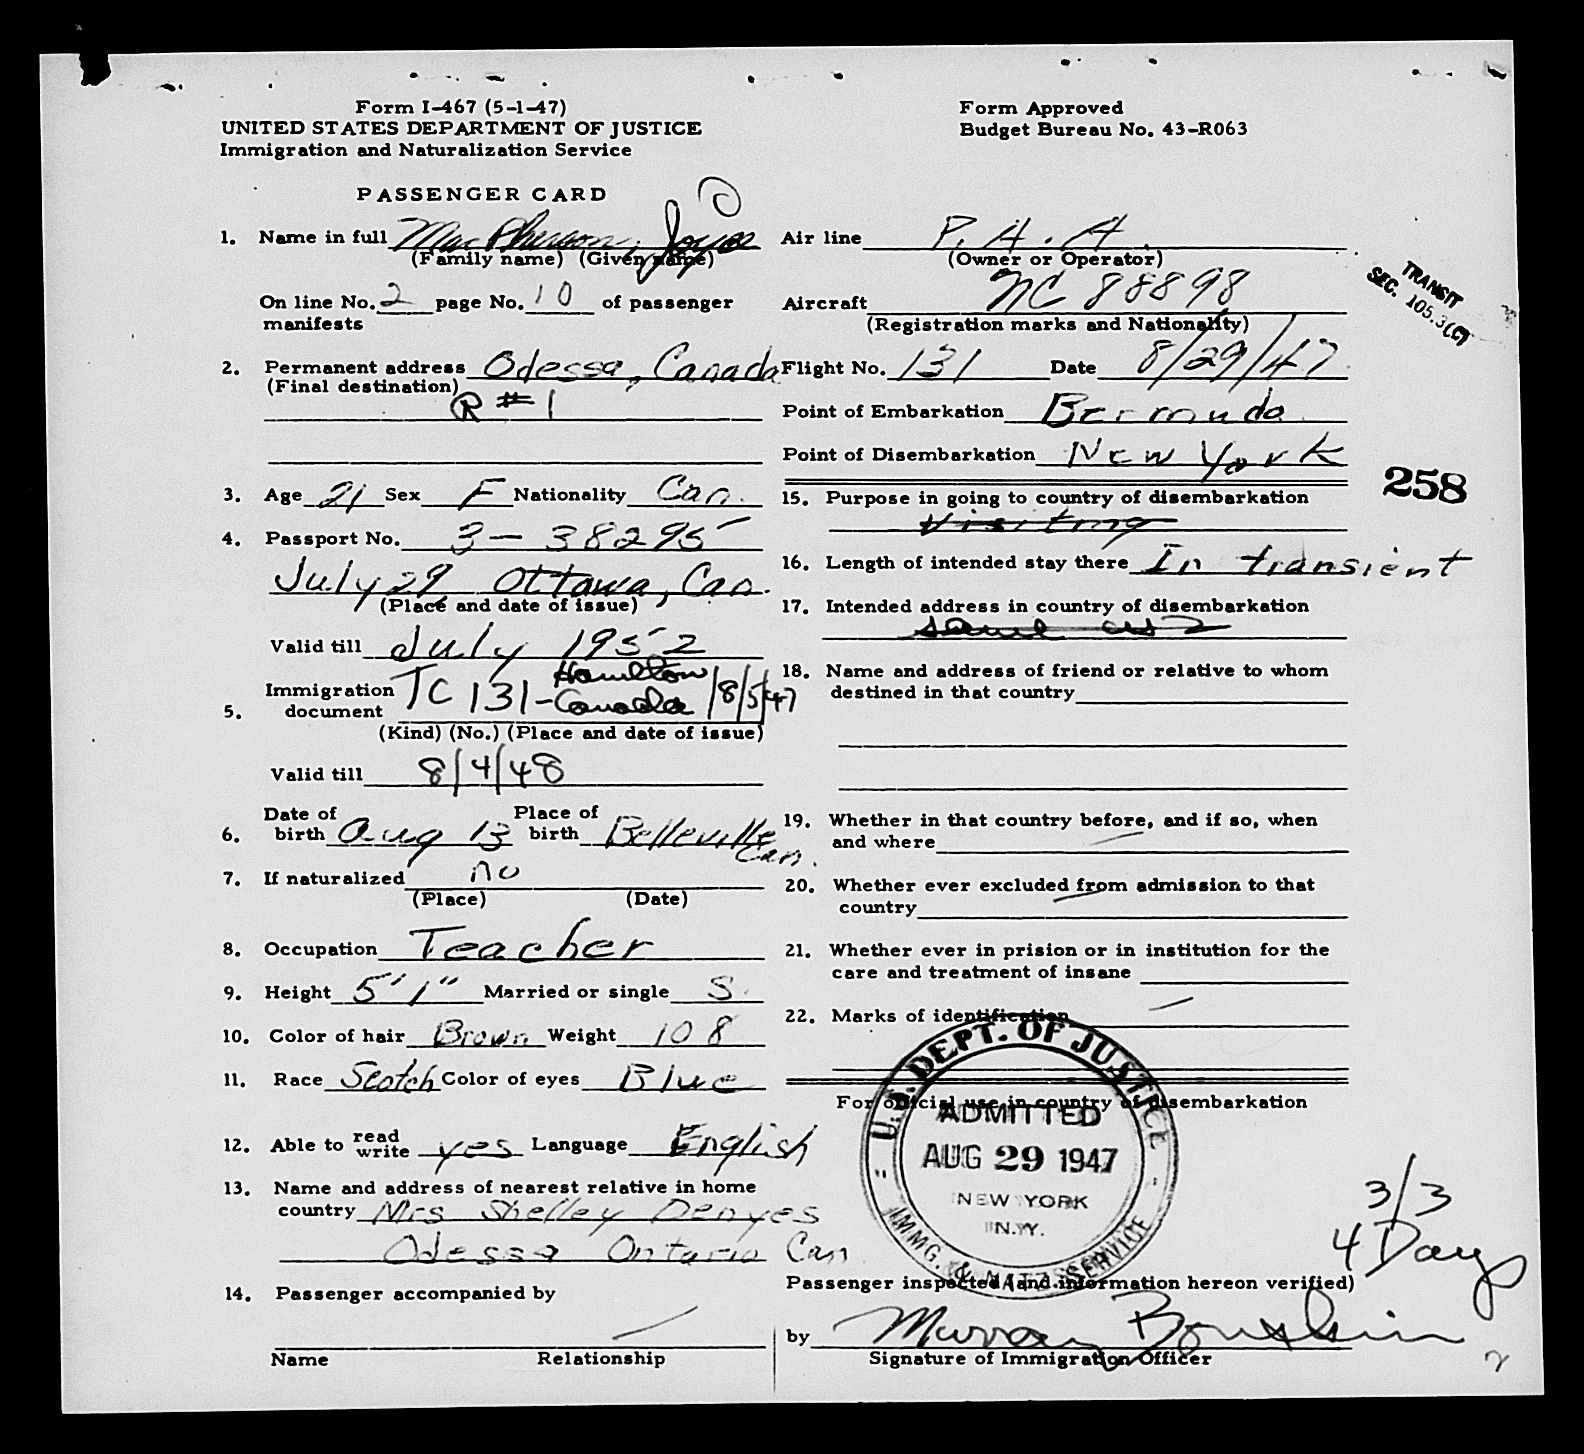 Form I-467 (5-1-47)
UNITED STATES DEPARTMENT OF JUSTICE
Immigration and Naturalization Service
Form Approved
Budget Bureau No. 43-R063
PASSENGER CARD
1. Name in full MacPherson, Joyce
(Family name) (Given name)
On line No. 2 page No. 10 of passenger
manifests
2. Permanent address Odessa, Canada
(Final destination)
R #1
3. Age 21 Sex F Nationality Can.
4. Passport No. 3-38295
July 29, Ottawa, Can.
(Place and date of issue)
Valid till July 1952
Hamilton
5. Immigration document TC 131-Canada 8/5/47
(Kind) (No.) (Place and date of issue)
Valid till 8/4/48
6. Date of birth Aug 13 Place of birth Belleville
Can.
7. If naturalized no
(Place) (Date)
8. Occupation Teacher
9. Height 5'1" Married or single S.
10. Color of hair Brown Weight 108
11. Race Scotch Color of eyes Blue
12. Able to read write yes Language English
13. Name and address of nearest relative in home
country Mrs Shelley Denyes
Odessa Ontario Can
14. Passenger accompanied by
Name Relationship
Air line P.A.A.
(Owner or Operator)
Aircraft NC 88898
(Registration marks and Nationality)
Flight No. 131 Date 8/29/47
Point of Embarkation Bermuda
Point of Disembarkation New York
15. Purpose in going to country of disembarkation
Visiting
16. Length of intended stay there In transient
17. Intended address in country of disembarkation
same as 2
18. Name and address of friend or relative to whom
destined in that country
19. Whether in that country before, and if so, when
and where
20. Whether ever excluded from admission to that
country
21. Whether ever in prision or in institution for the
care and treatment of insane
22. Marks of identification
For official use in country of disembarkation
U.S. DEPT. OF JUSTICE
ADMITTED
AUG 29 1947
NEW YORK
N.Y.
IMMG. & NATZ. SERVICE
Passenger inspected (and information hereon verified)
by Murray
Signature of Immigration Officer
TRANSIT
SEC. 105.3(C)
258
3/3
4 Days
2